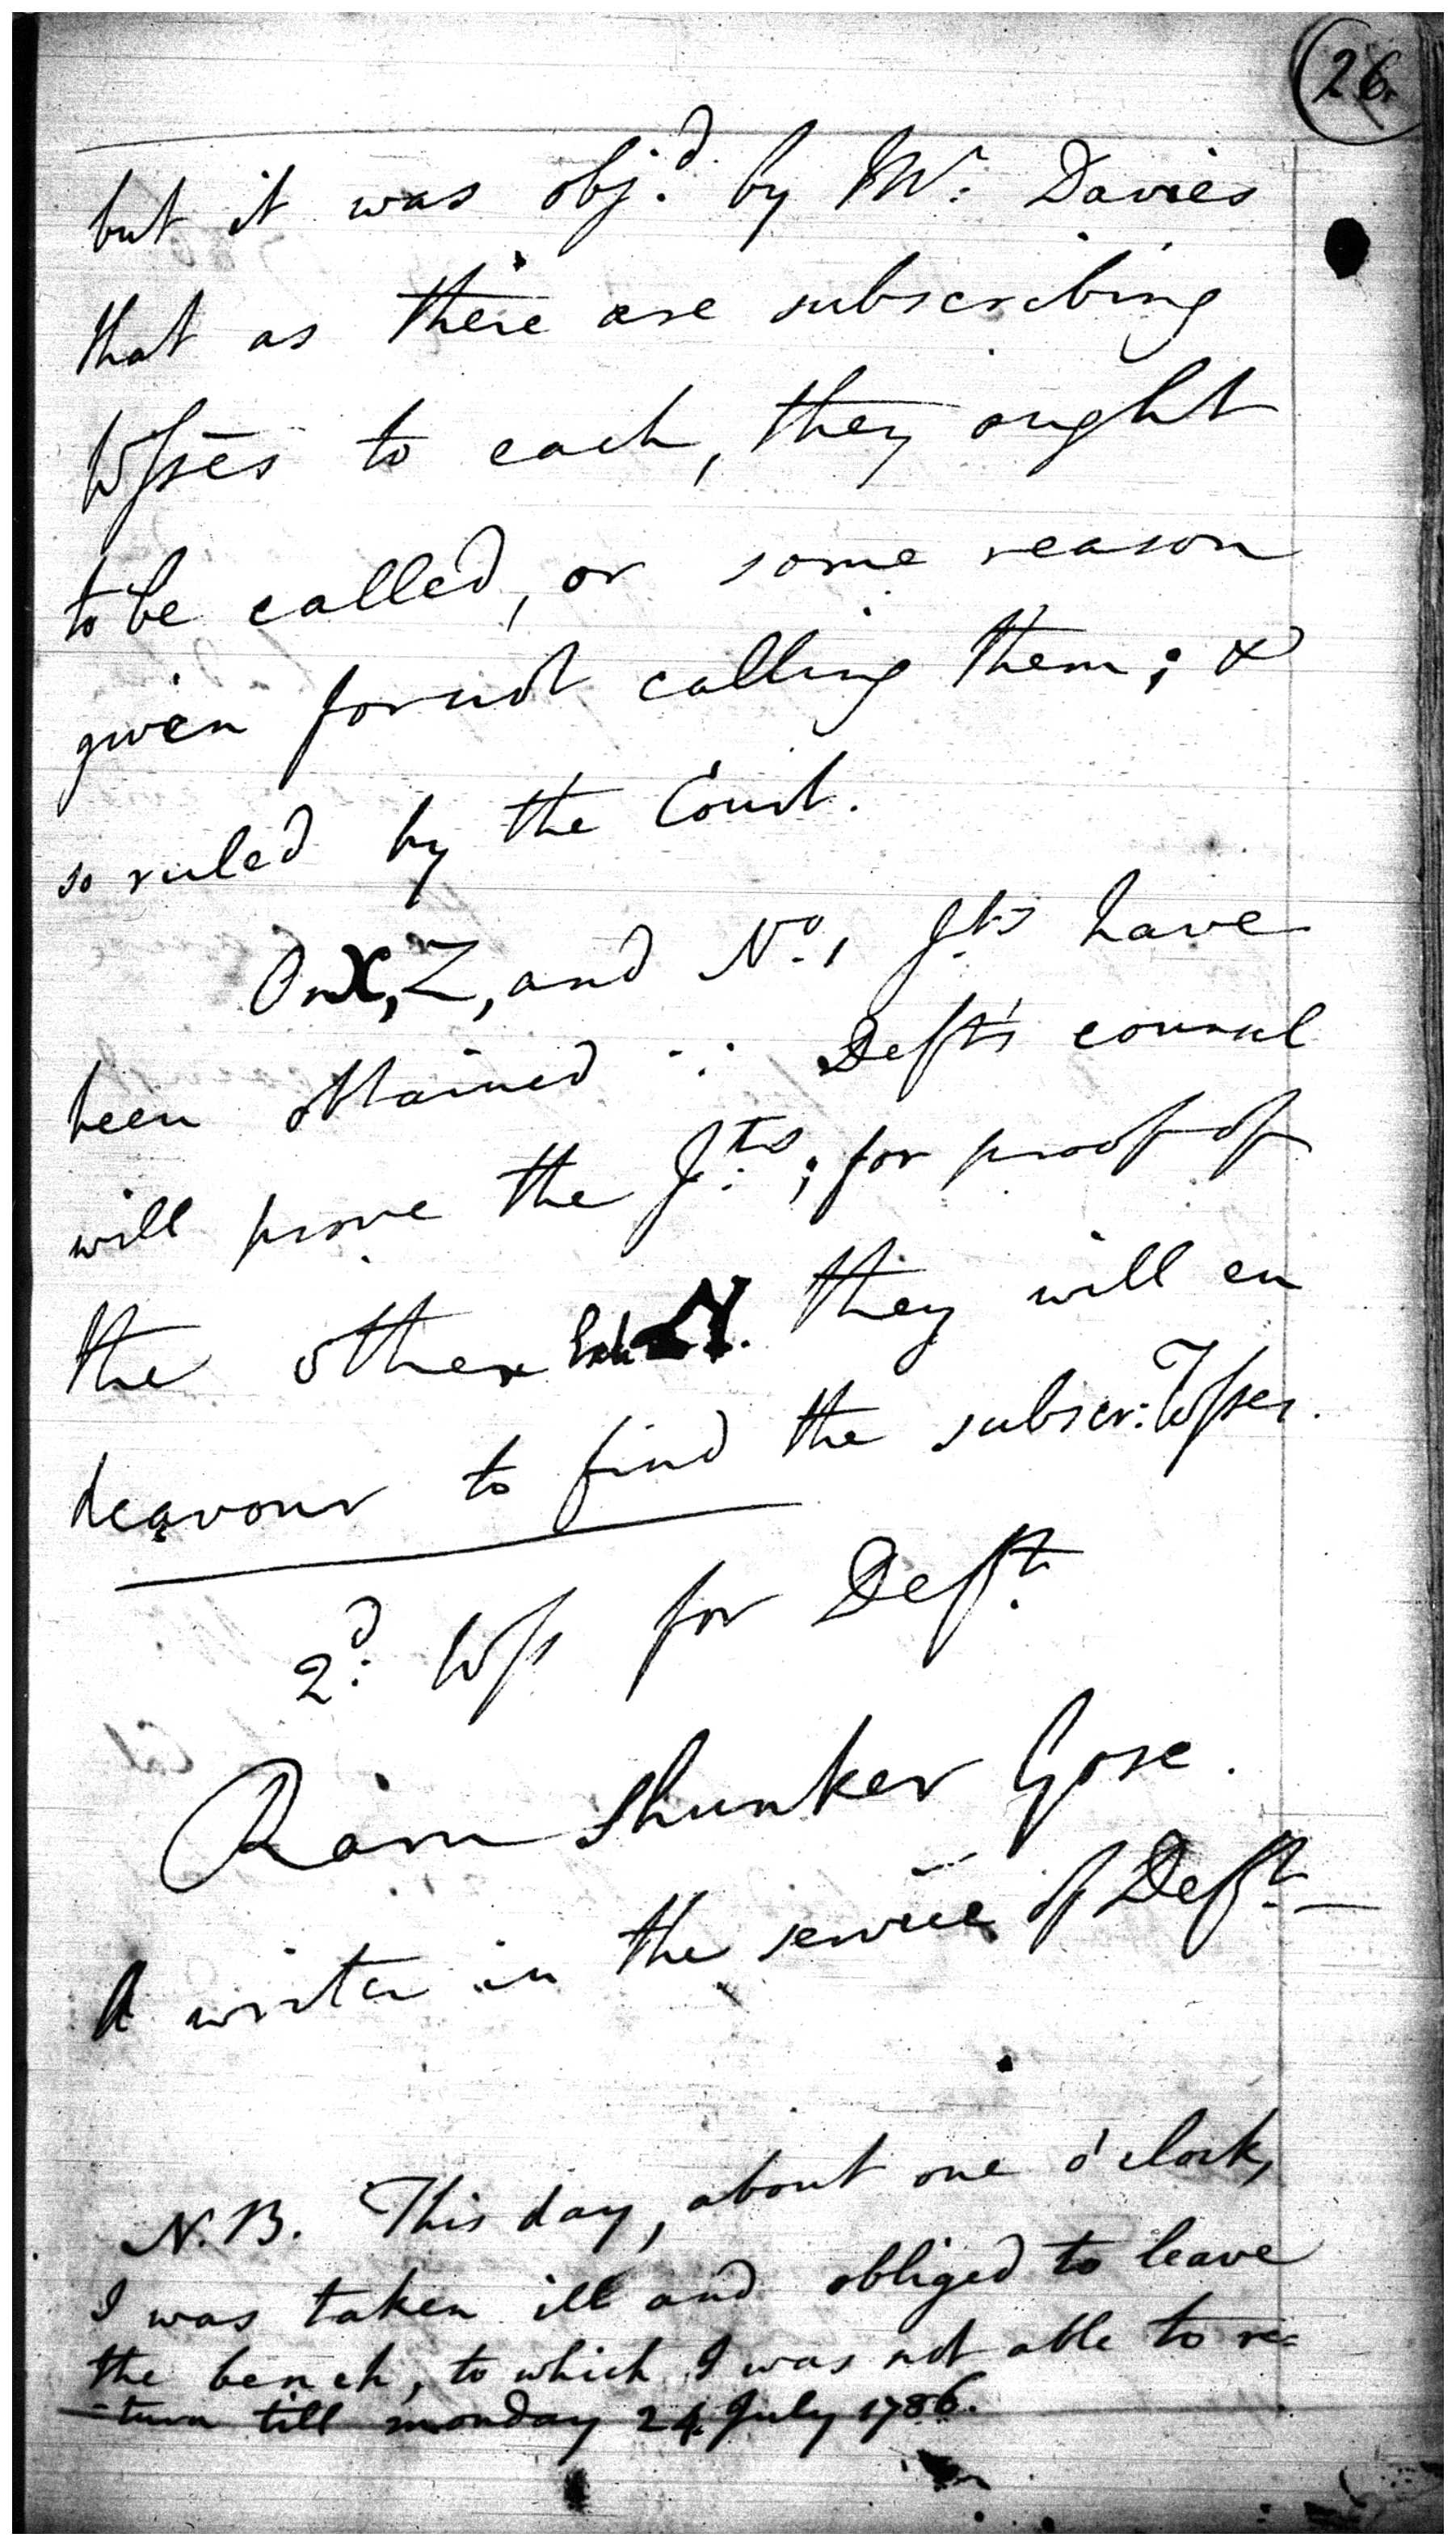 26.
but it was obj.d by Mr. Davies
that as there are subscribing
Wsses to each, they ought
to be called, or some reason
given for not calling them; &
so ruled by the Court.
On X, Z, and No. 1 Jts have
been obtained ∴ Deft's counsel
will prove the J.ts; for proof of
the other Exh. Y. they will en
deavour to find the subscr: Wsses.
2d: Wss for Deft.
Ram Shunker Gose.
A writer in the service of Deft.—
N.B. This day, about one o'clock,
I was taken ill and obliged to leave
the bench, to which I was not able to re=
-turn till monday 24 July 1786.